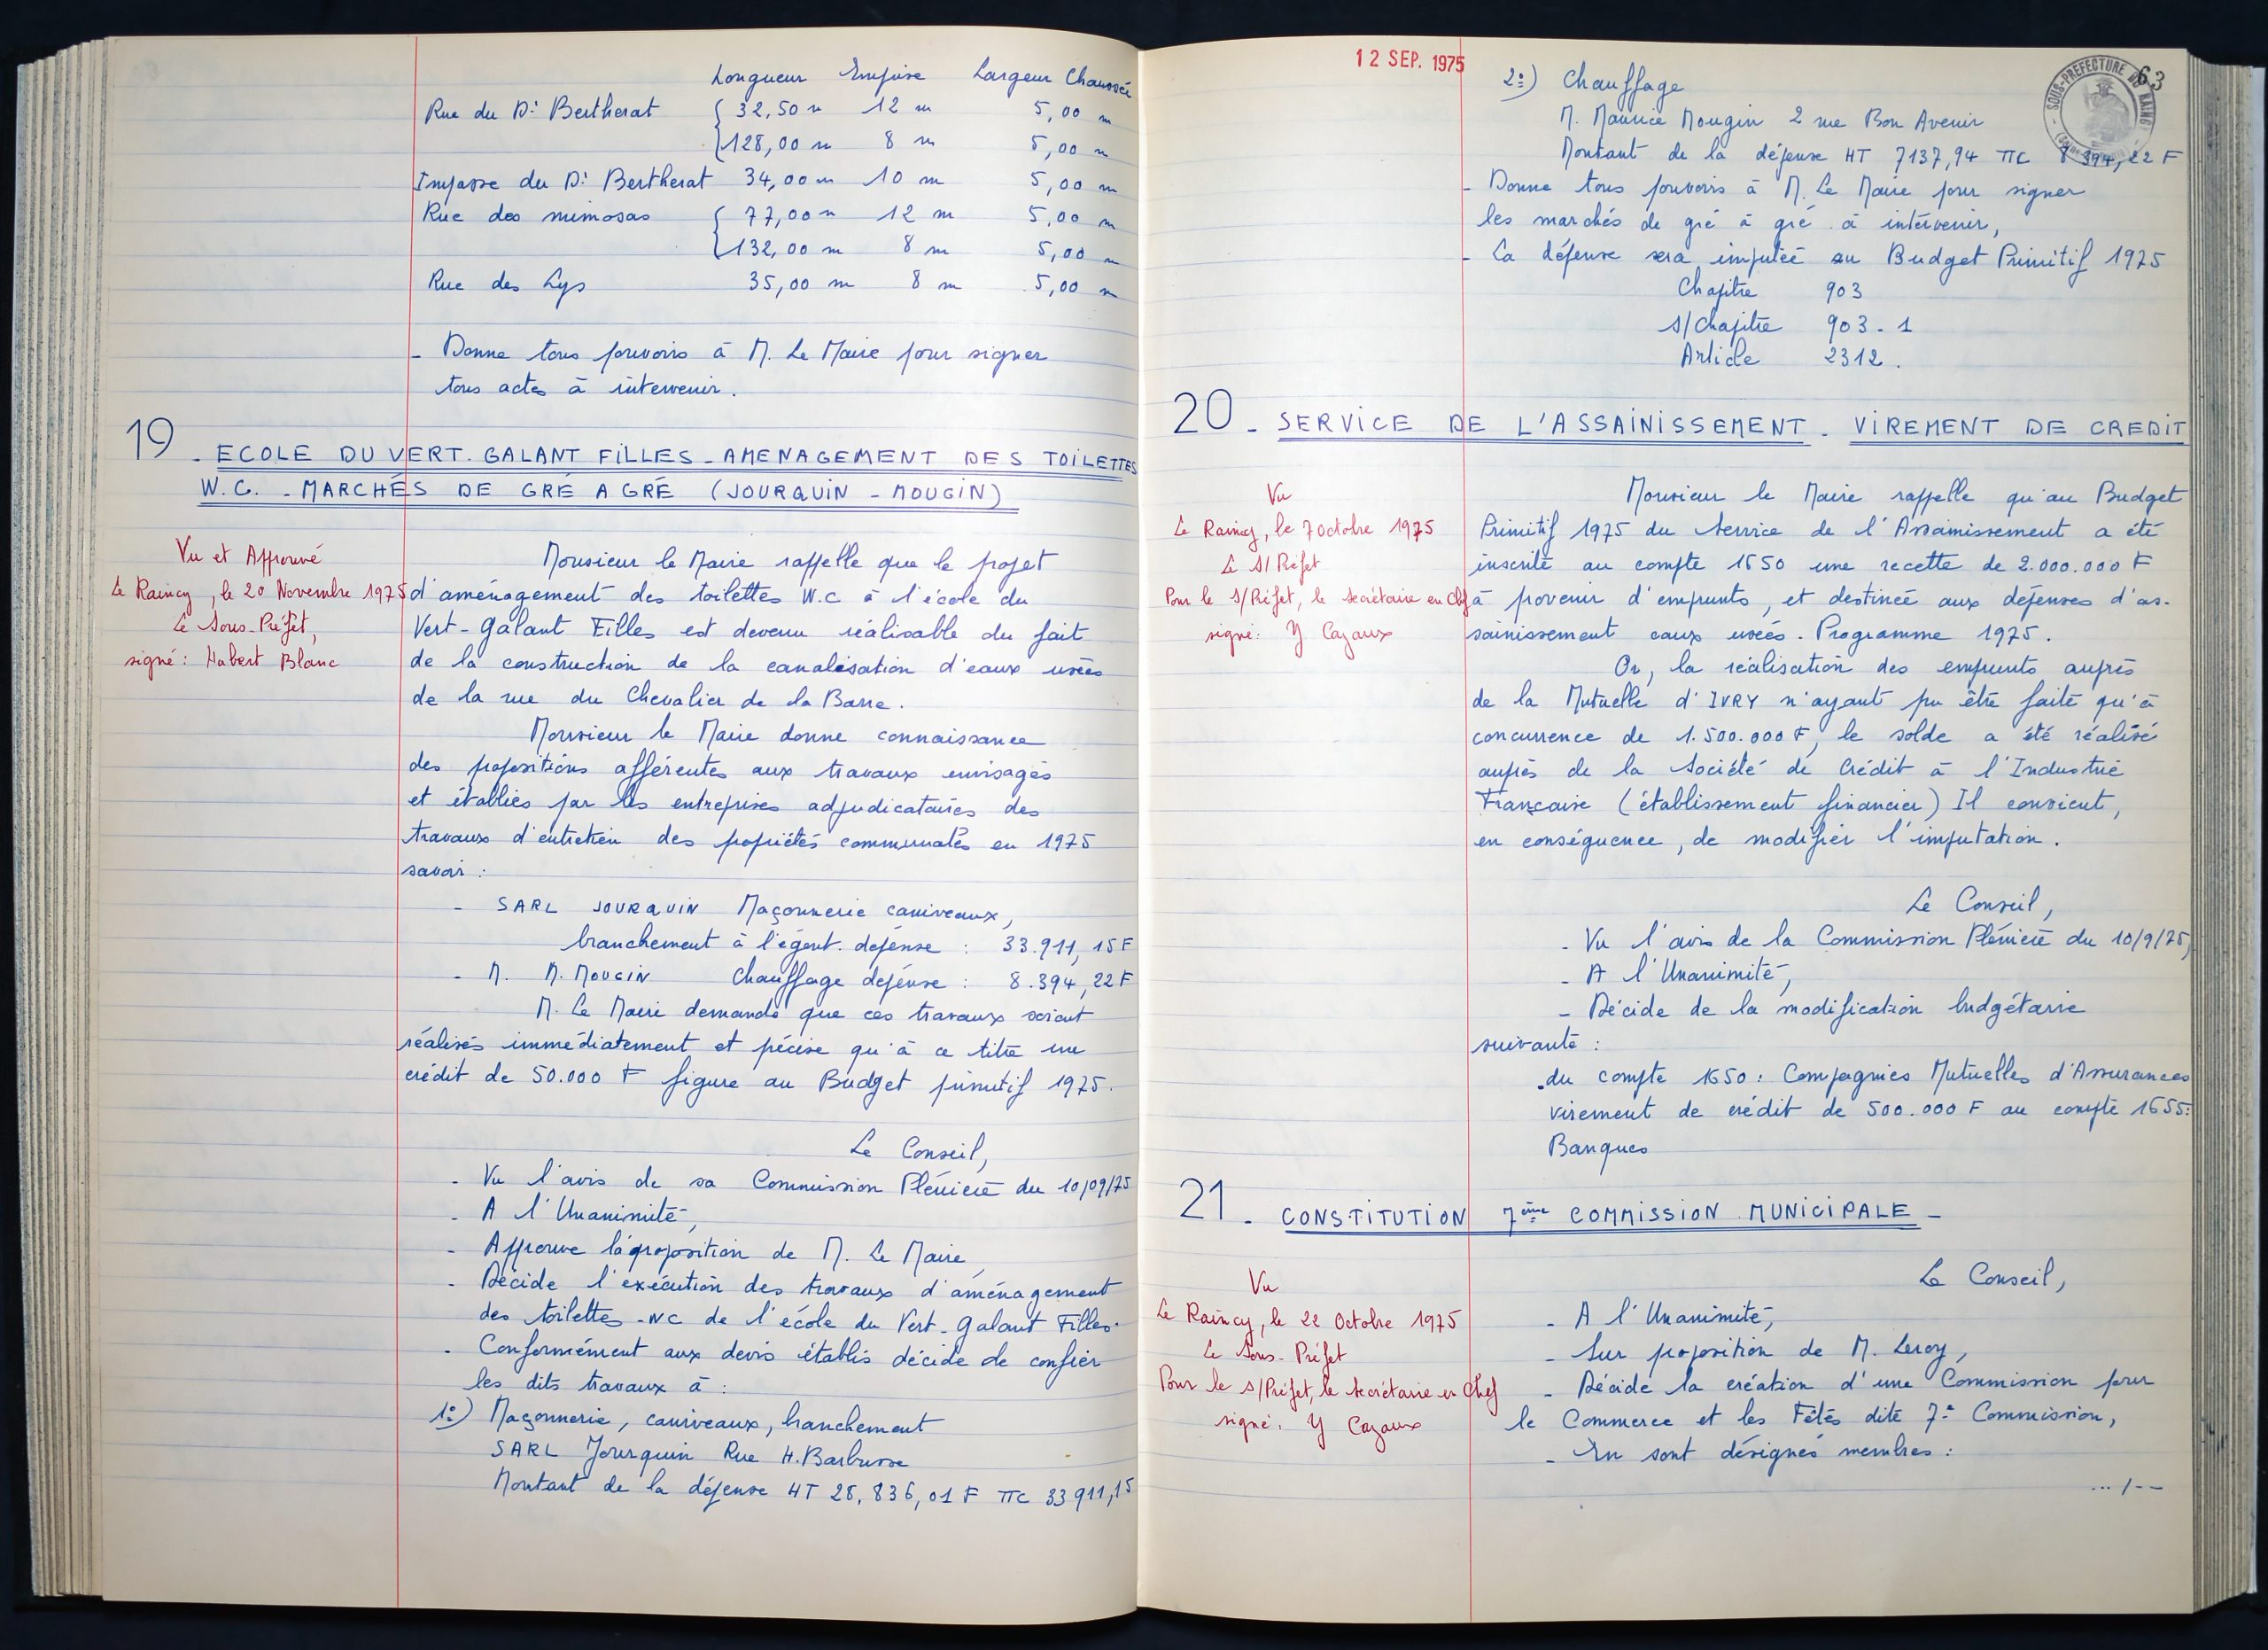 Longueur Emprise Largeur Chaussée
Rue du Dr Bertherat { 32,50 m 12 m 5,00 m
128,00 m 8 m 5,00 m
Impasse du Dr Bertherat 34,00 m 10 m 5,00 m
Rue des mimosas { 77,00 m 12 m 5,00 m
132,00 m 8 m 5,00 m
Rue des Lys 35,00 m 8 m 5,00 m
- Donne tous pouvoirs à M. Le Maire pour signer
tous actes à intervenir.
19 - ECOLE DU VERT-GALANT FILLES - AMENAGEMENT DES TOILETTES
W.C. - MARCHÉS DE GRÉ A GRÉ (JOURQUIN - MOUGIN)
Vu et Approuvé
Le Raincy, le 20 Novembre 1975
Le Sous-Préfet,
signé : Habert Blanc
Monsieur le Maire rappelle que le projet
d'aménagement des toilettes W.c à l'école du
Vert-Galant Filles est devenu réalisable du fait
de la construction de la canalisation d'eaux usées
de la rue du Chevalier de la Barre.
Monsieur le Maire donne connaissance
des propositions afférentes aux travaux envisagés
et établies par les entreprises adjudicataires des
travaux d'entretien des propriétés communales en 1975
savoir :
- SARL JOURQUIN Maçonnerie caniveaux,
branchement à l'égout. dépense : 33.911,15 F
- M. M. MOUGIN Chauffage dépense : 8.394,22 F
M. Le Maire demande que ces travaux soient
réalisés immédiatement et précise qu'à ce titre un
crédit de 50.000 F figure au Budget primitif 1975.
Le Conseil,
- Vu l'avis de sa Commission Plénière du 10/09/75
- A l'Unanimité,
- Approuve la proposition de M. Le Maire,
- Décide l'exécution des travaux d'aménagement
des toilettes - WC de l'école du Vert-Galant Filles.
- Conformément aux devis établis décide de confier
les dits travaux à :
1°) Maçonnerie, caniveaux, branchement
SARL Jourquin Rue H. Barbusse
Montant de la dépense HT 28.836,01 F TTC 33911,15
12 SEP. 1975
63
SOUS-PREFECTURE DU RAINCY
2°) Chauffage
M. Maurice Mougin 2 rue Bon Avenir
Montant de la dépense HT 7137,94 TTC 8 394,22 F
- Donne tous pouvoirs à M. Le Maire pour signer
les marchés de gré à gré à intervenir,
- La dépense sera imputée au Budget Primitif 1975
Chapitre 903
s/chapitre 903-1
Article 2312.
20 - SERVICE DE L'ASSAINISSEMENT - VIREMENT DE CREDIT
Vu
Le Raincy, le 7 octobre 1975
Le S/Préfet
Pour le S/Préfet, le secrétaire en Chef
signé : Y Cazaux
Monsieur le Maire rappelle qu'au Budget
Primitif 1975 du Service de l'Assainissement a été
inscrite au compte 1650 une recette de 2.000.000 F
à provenir d'emprunts, et destinée aux dépenses d'as-
sainissement eaux usées. Programme 1975.
Or, la réalisation des emprunts auprès
de la Mutuelle d'IVRY n'ayant pu être faite qu'à
concurrence de 1.500.000 F, le solde a été réalisé
auprès de la Société de Crédit à l'Industrie
Française (établissement financier) Il convient,
en conséquence, de modifier l'imputation.
Le Conseil,
- Vu l'avis de la Commission Plénière du 10/9/75,
- A l'Unanimité,
- Décide de la modification budgétaire
suivante :
. du compte 1650 : Compagnies Mutuelles d'Assurances
virement de crédit de 500.000 F au compte 1655:
Banques
21 - CONSTITUTION 7ème COMMISSION MUNICIPALE -
Vu
Le Raincy, le 22 Octobre 1975
Le Sous-Préfet
Pour le s/Préfet, le secrétaire en Chef
signé. Y Cazaux
Le Conseil,
- A l'Unanimité,
- Sur proposition de M. Leroy,
- Décide la création d'une Commission pour
le Commerce et les Fêtes dite 7e Commission,
- En sont désignés membres :
.../--